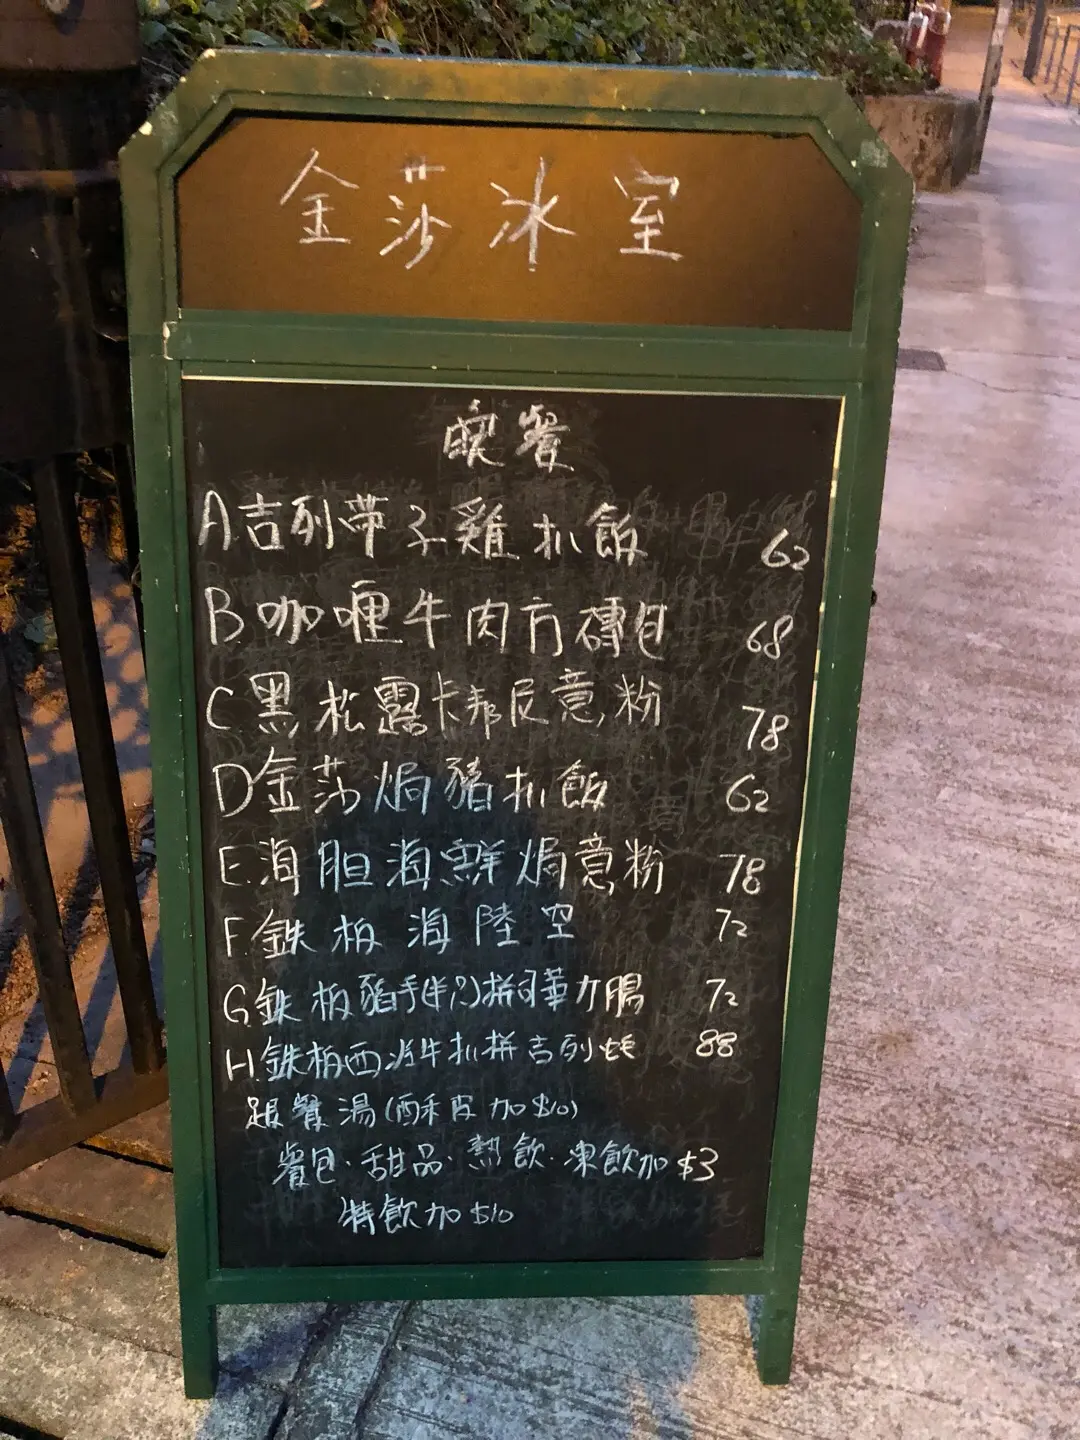 金莎冰室
晚餐
A.吉列帶子雞扒飯 62
B 咖喱牛肉方磚包 68
C.黑松露卡邦尼意粉 78
D 金莎焗豬扒飯 62
E.海胆海鮮焗意粉 78
F.鉄板海陸空 72
G.鉄板豬手(半只)拼司華力腸 72
H.鉄板西冷牛扒拼吉列蚝 88
跟餐湯(酥皮加$10)
餐包·甜品·熱飲·凍飲加$3
特飲加$10